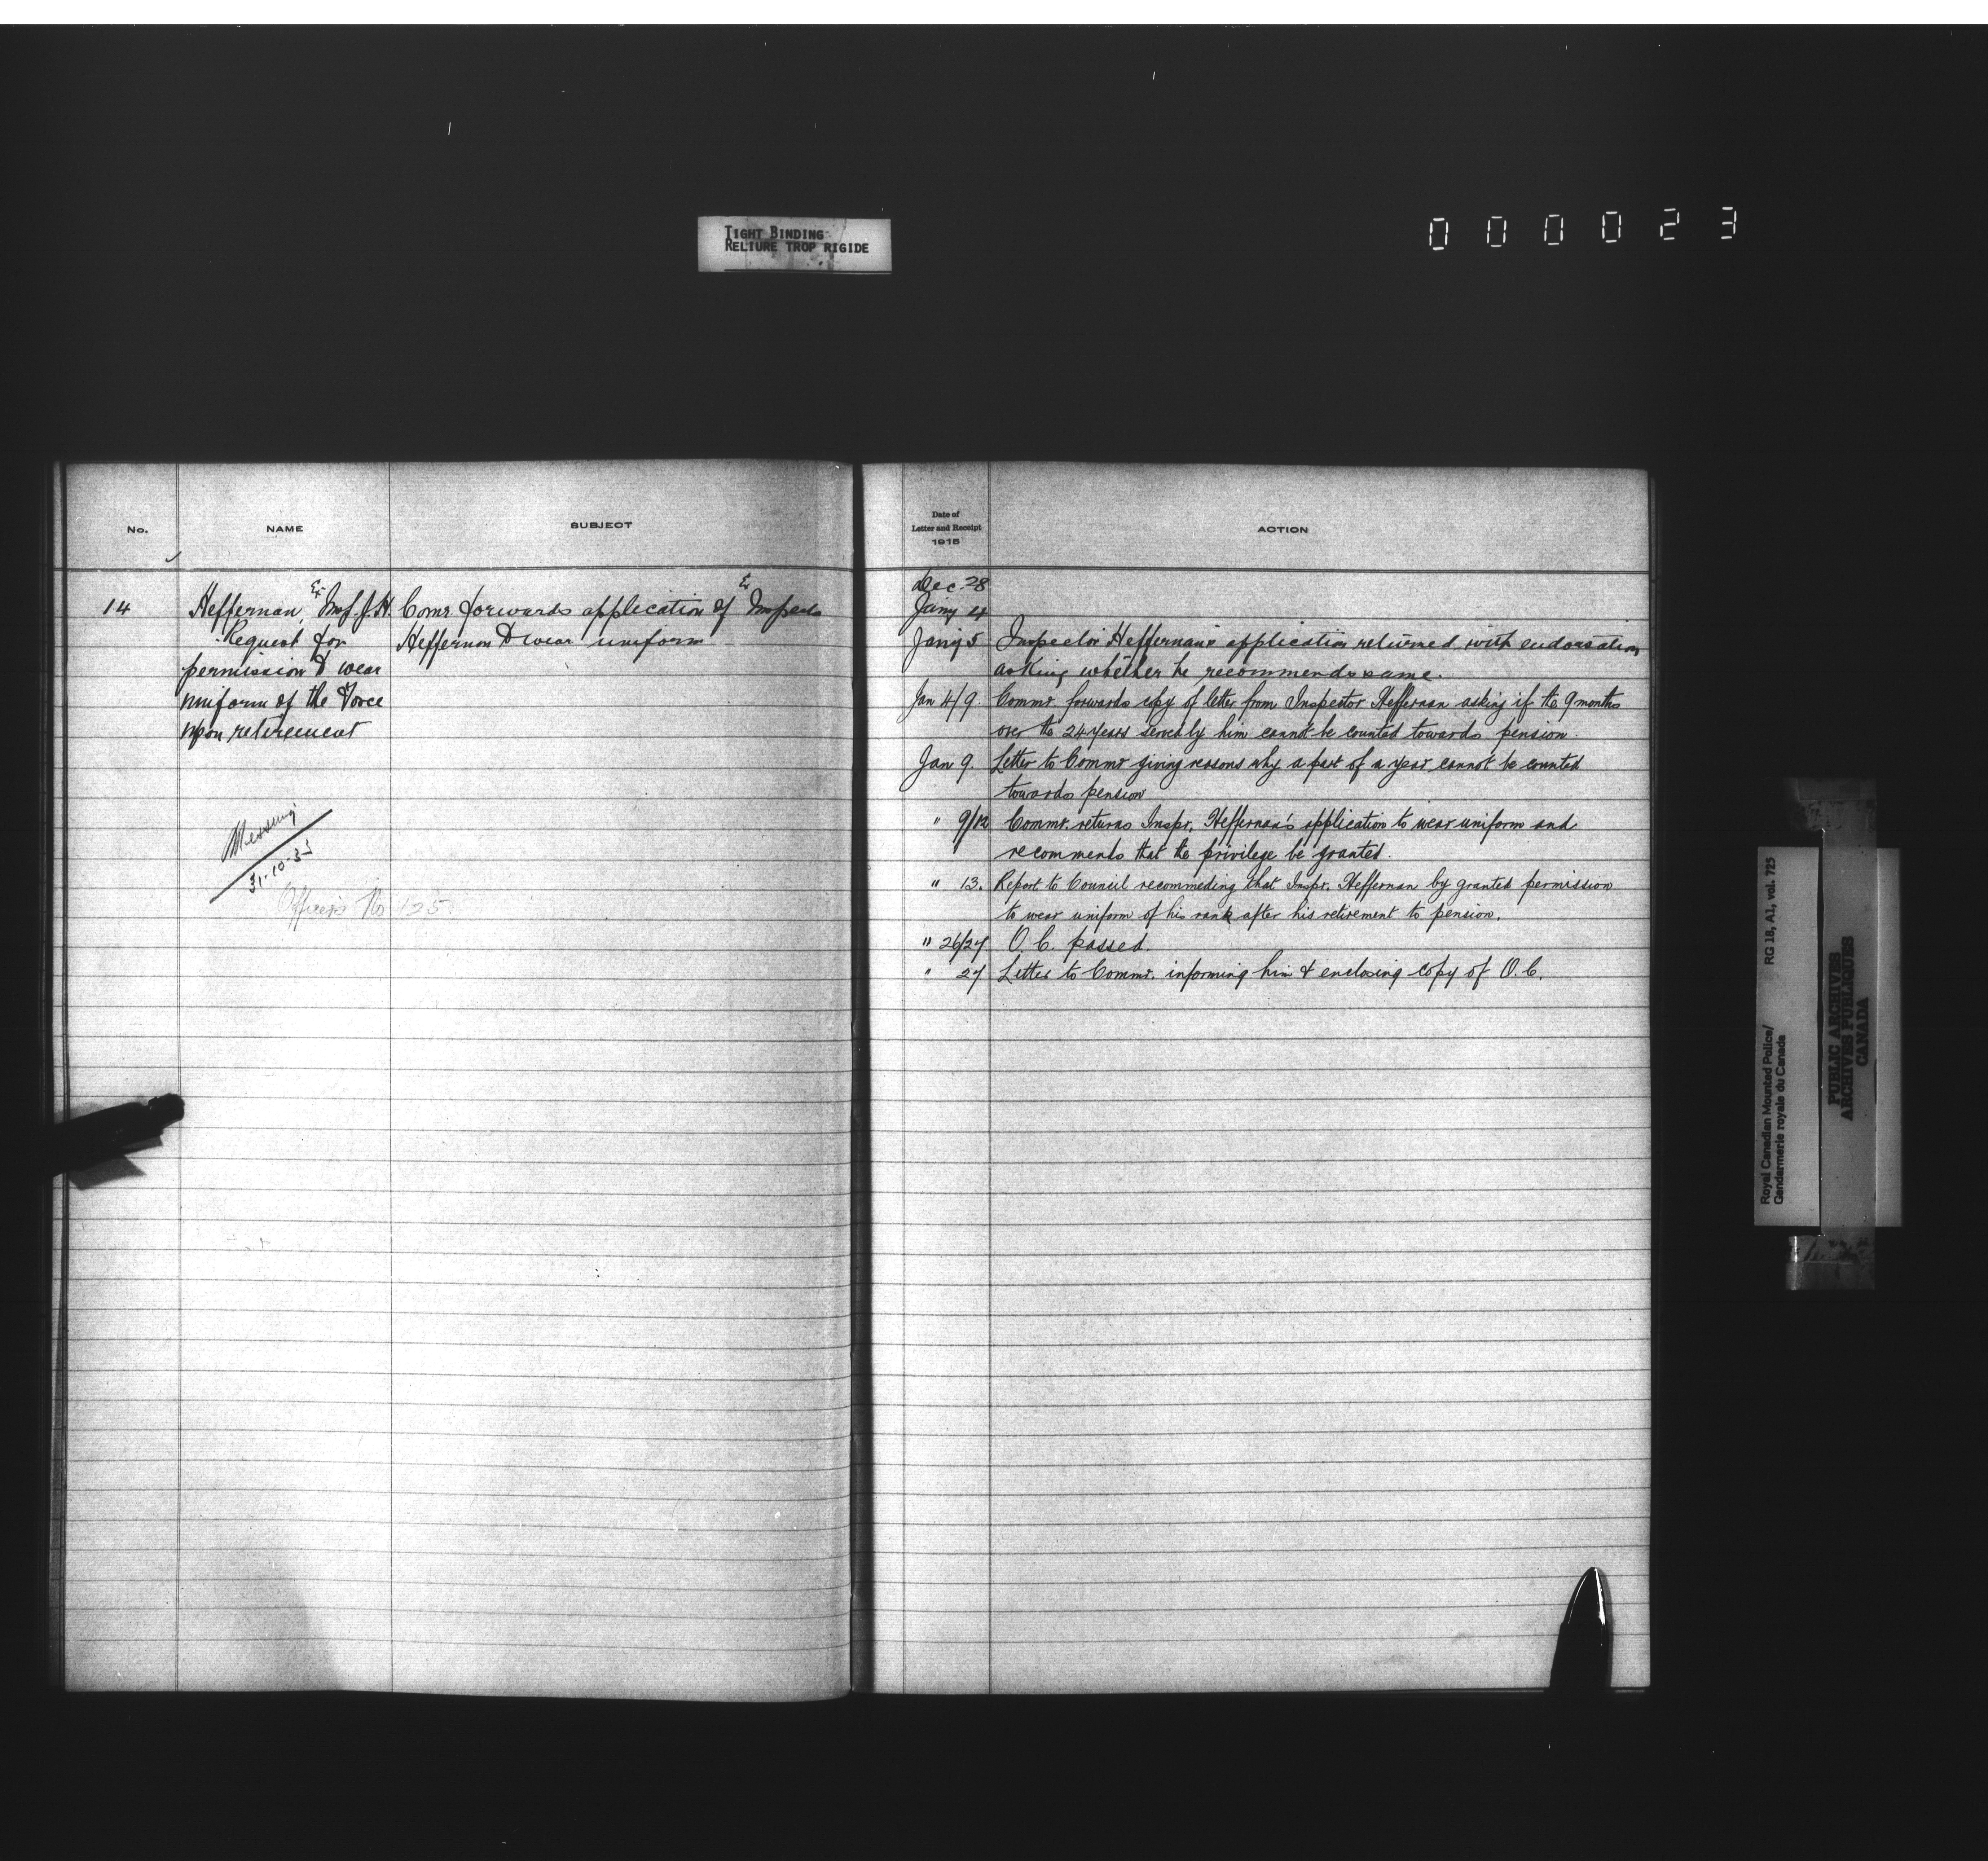 TIGHT BINDING
RELIURE TROP RIGIDE
000023
No.
NAME
SUBJECT
14
Heffernan, Ex Insp. J.H.
Request for
permission to wear
uniform of the Force
upon retirement
Comr. forwards application of Ex Inspector
Heffernan to wear uniform
Missing
31-10-35
Officer's No 125
Date of
Letter and Receipt
1915
ACTION
Dec. 28
Jany 4
Jany 5 Inspector Heffernan's application returned with endorsation
asking whether he recommends same.
Jan 4/9. Commr. forwards copy of letter from Inspector Heffernan asking if the 9 months
over the 24 years served by him cannot be counted towards pension.
Jan 9. Letter to Commr giving reasons why a part of a year cannot be counted
towards pension
" 9/12 Commr. returns Inspr. Heffernan's application to wear uniform and
recommends that the privilege be granted.
" 13. Report to Council recommeding that Inspr. Heffernan by granted permission
to wear uniform of his rank after his retirement to pension.
" 26/27 O.C. passed.
" 27 Letter to Commr. informing him & enclosing copy of O.C.
Royal Canadian Mounted Police/
Gendarmerie royale du Canada
RG 18, A1, vol. 725
PUBLIC ARCHIVES
ARCHIVES PUBLIQUES
CANADA